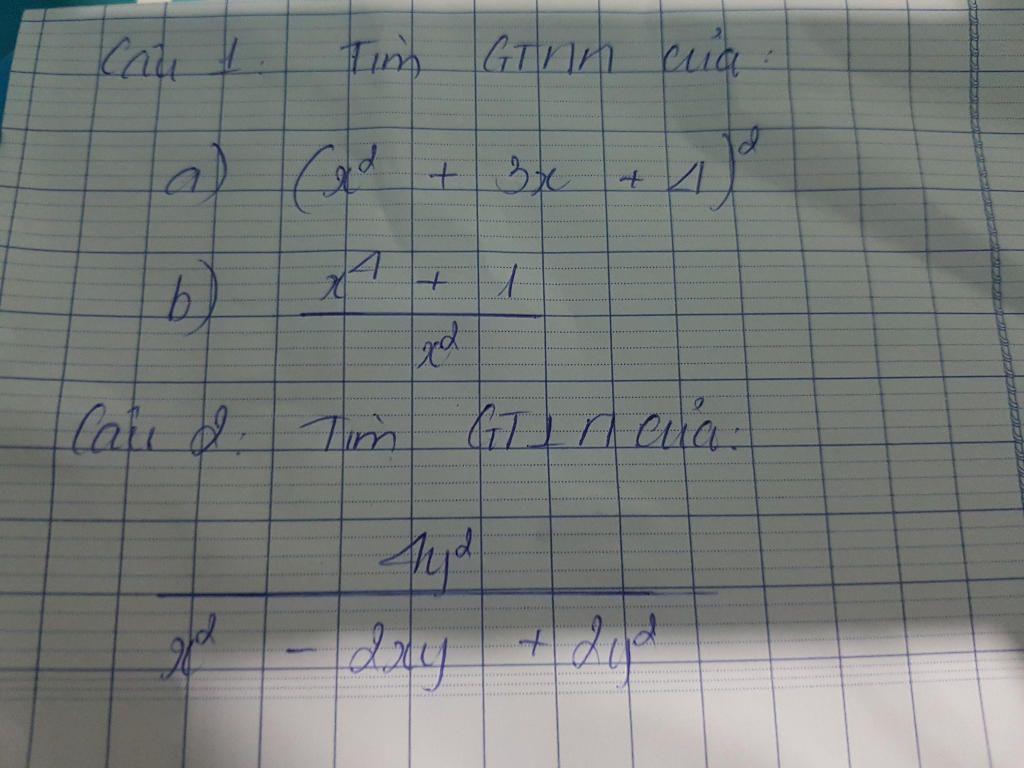 Câu 1: Tìm GTNN của:
a) (x² + 3x + 4)²
b) x⁴ + 1
x²
Câu 2: Tìm GTLN của:
4y²
x² - 2xy + 2y²